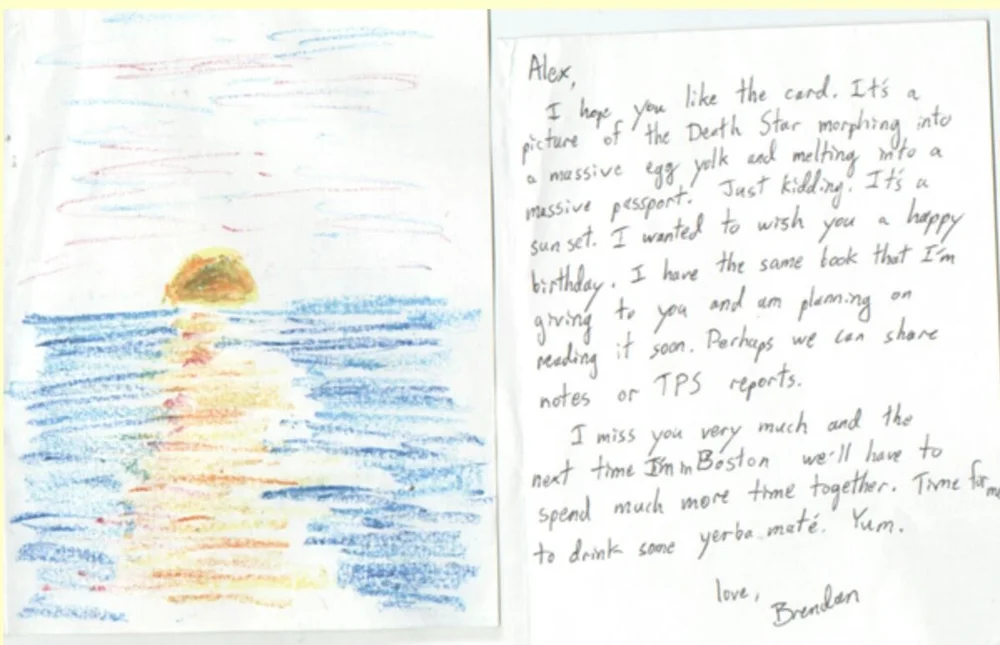 Alex,
I hope you like the card. It's a
picture of the Death Star morphing into
a massive egg yolk and melting into a
massive passport. Just kidding. It's a
sunset. I wanted to wish you a happy
birthday. I have the same book that I'm
giving to you and am planning on
reading it soon. Perhaps we can share
notes or TPS reports.
I miss you very much and the
next time I'm in Boston we'll have to
spend much more time together. Time for me
to drink some yerba maté. Yum.
love,
Brendan